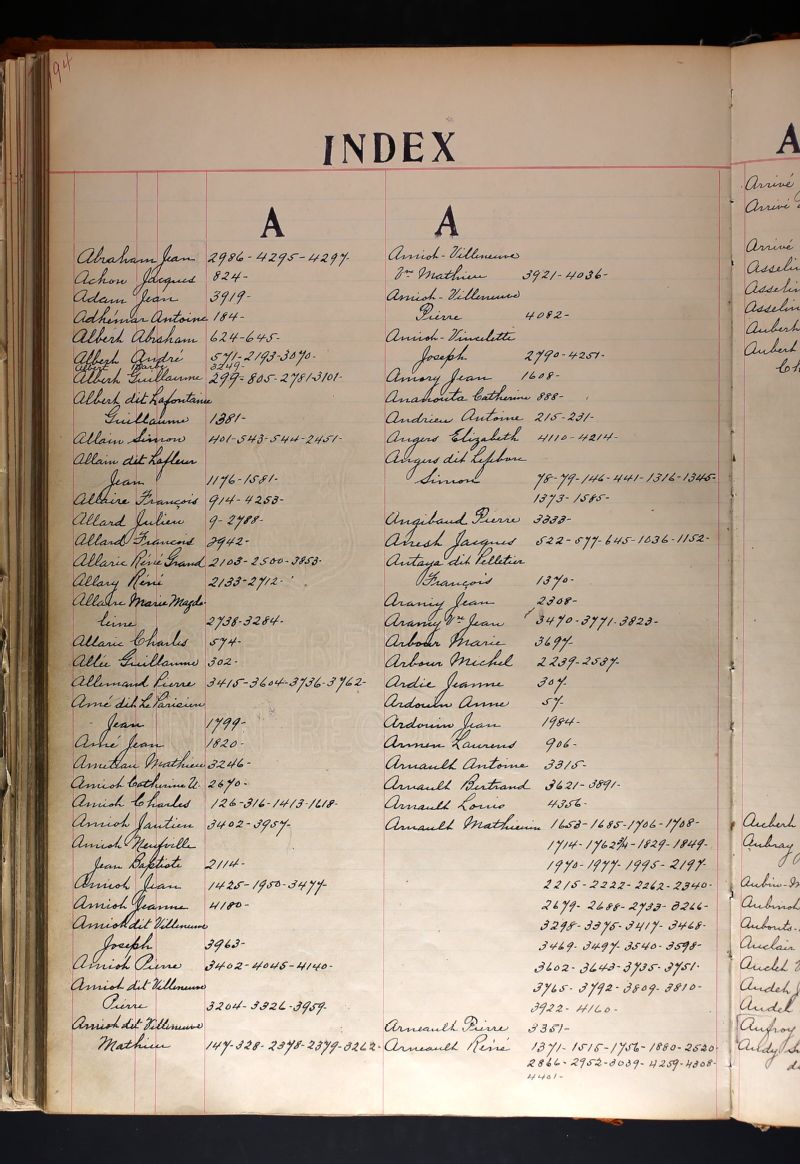 194
INDEX
A
Abraham Jean 2986-4295-4297-
Achon Jacques 824-
Adam Jean 3919-
Adhémar Antoine 184-
Albert Abraham 624-645-
Albert André 571-2193-3070-
Albert Marty 3249-
Albert Guillaume 299-805-2781-3101-
Albert dit Lafontaine
Guillaume 1381-
Allain Simon 401-543-544-2451-
Allain dit Lafleur
Jean 1176-1581-
Allaire François 914-4253-
Allard Julien 9-2788-
Allard Francois 3942-
Allarie Réné Grand 2103-2500-3853-
Allary Réné 2133-2712-
Allaire Marie Magde-
leine 2738-3284-
Allarie Charles 574-
Allée Guillaume 302-
Allemand Pierre 3415-3604-3736-3762-
Amé dit Le Parisien
Jean 1799-
Amé Jean 1820-
Mathieu 3246-
Amiot Catherine U. 2670-
Amiot Charles 126-316-1413-1618-
Amiot Jautien 3402-3957-
Amiot Neufville
Jean Baptiste 2114-
Amiot Jean 1425-1950-3477-
Amiot Jeanne 4180-
Amiot dit Villeneuve
Joseph 3963-
Amiot Pierre 3402-4045-4140-
Amiot dit Villeneuve
Pierre 3204-3326-3959-
Amiot dit Villeneuve
Mathieu 147-328-2378-2379-3262-
A
Amiot-Villeneuve
Vve Mathieu 3921-4036-
Amiot-Villeneuve
Pierre 4082-
Amiot-Vincelette
Joseph 2790-4251-
Amory Jean 1608-
Ananouta Catherine 888-
Andrieu Antoine 215-231-
Angers Elizabeth 4110-4214-
Angers dit Lefebvre
Simon 78-79-146-441-1316-1345-
1373-1585-
Angibaud Pierre 3333-
Arrest Jacques 522-577-645-1036-1152-
Antaya dit Pelletier
François 1370-
Aramy Jean 2308-
Aramy Vve Jean 3470-3771-3823-
Arbour Marie 3697-
Arbour Michel 2239-2537-
Ardie Jeanne 307-
Ardouin Anne 57-
Ardouin Jean 1984-
Armen Laurens 906-
Arnault Antoine 3315-
Arnault Bertrand 3621-3891-
Arnault Louis 4356-
Arnault Mathurin 1653-1685-1706-1708-
1714-1762¾-1829-1849-
1970-1977-1995-2197-
2215-2222-2262-2340-
2679-2688-2733-3266-
3298-3375-3417-3468-
3469-3497-3540-3598-
3602-3643-3735-3751-
3765-3792-3809-3810-
3922-4160-
Arneault Pierre 3351-
Arneault Réné 1371-1515-1756-1880-2520-
2866-2952-3039-4259-4308-
4401-
A
Arrivé
Arrivé
Arrivé
Asselin
Asselin
Asselin
Aubert
Aubert
Ch
Aubert
Aubray
Aubin-
Auclair
Audet
Audet
Aufroy
Audy